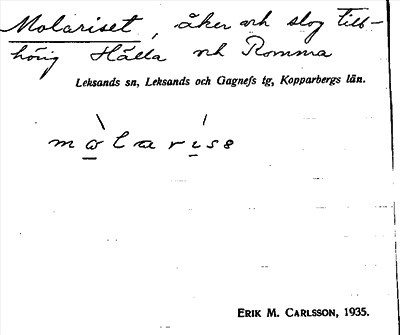 Molariset, åker och slog till-
hörig Hälla och Romma
Leksands sn, Leksands och Gagnefs tg, Kopparbergs län.
mòlarísε
ERIK M. CARLSSON, 1935.